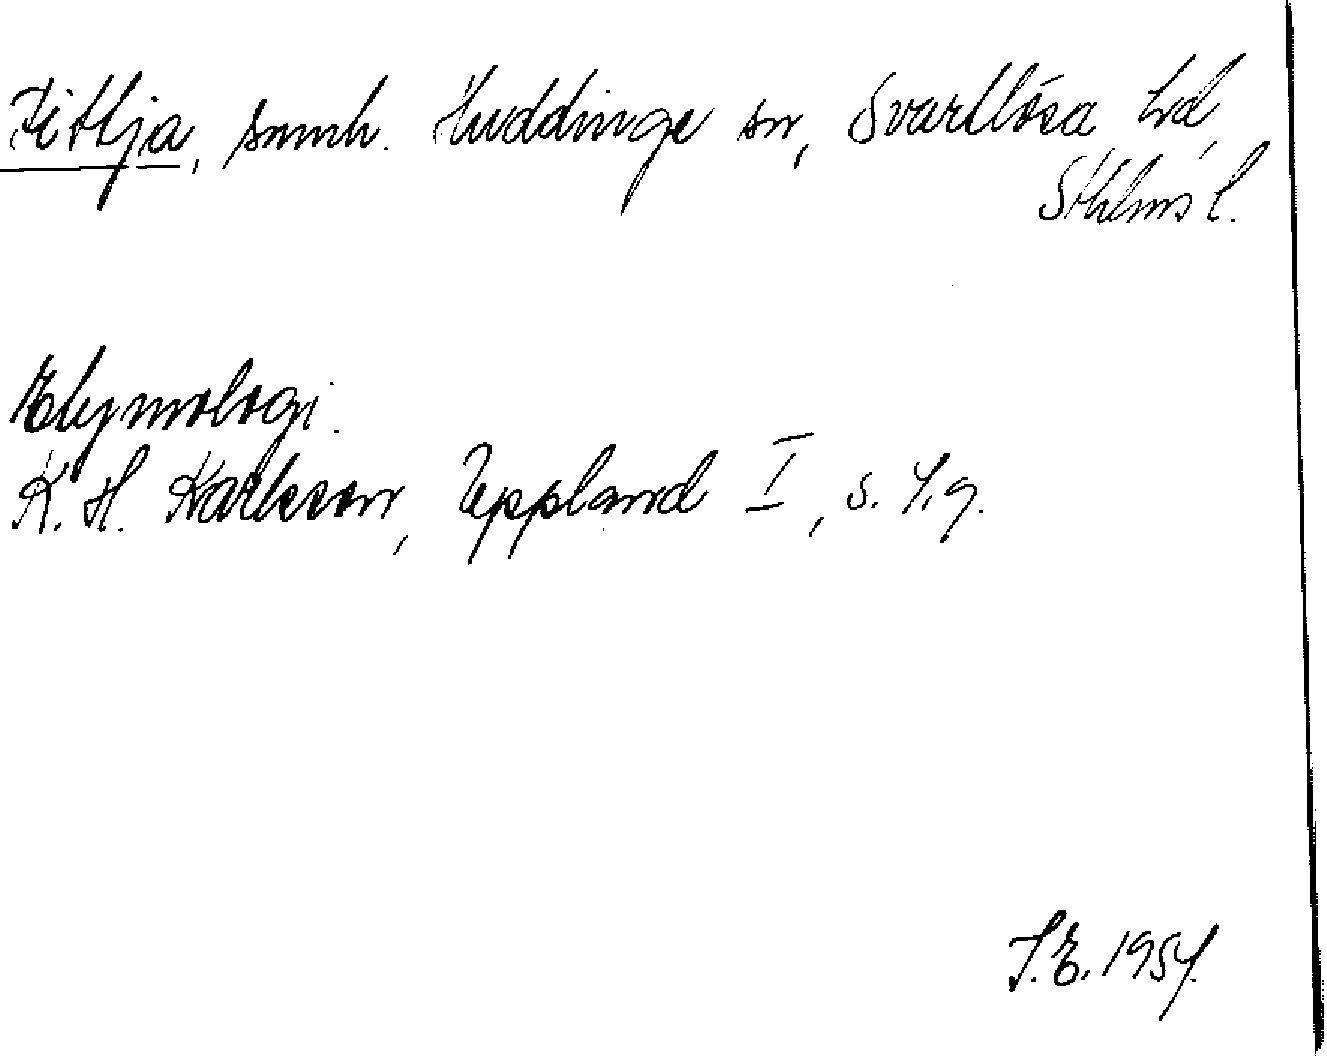 Fittja, samh. Huddinge sn, Svartlösa hd,
Sthlms l.
Etymologi.
K. H. Karlsson, Uppland I, s.